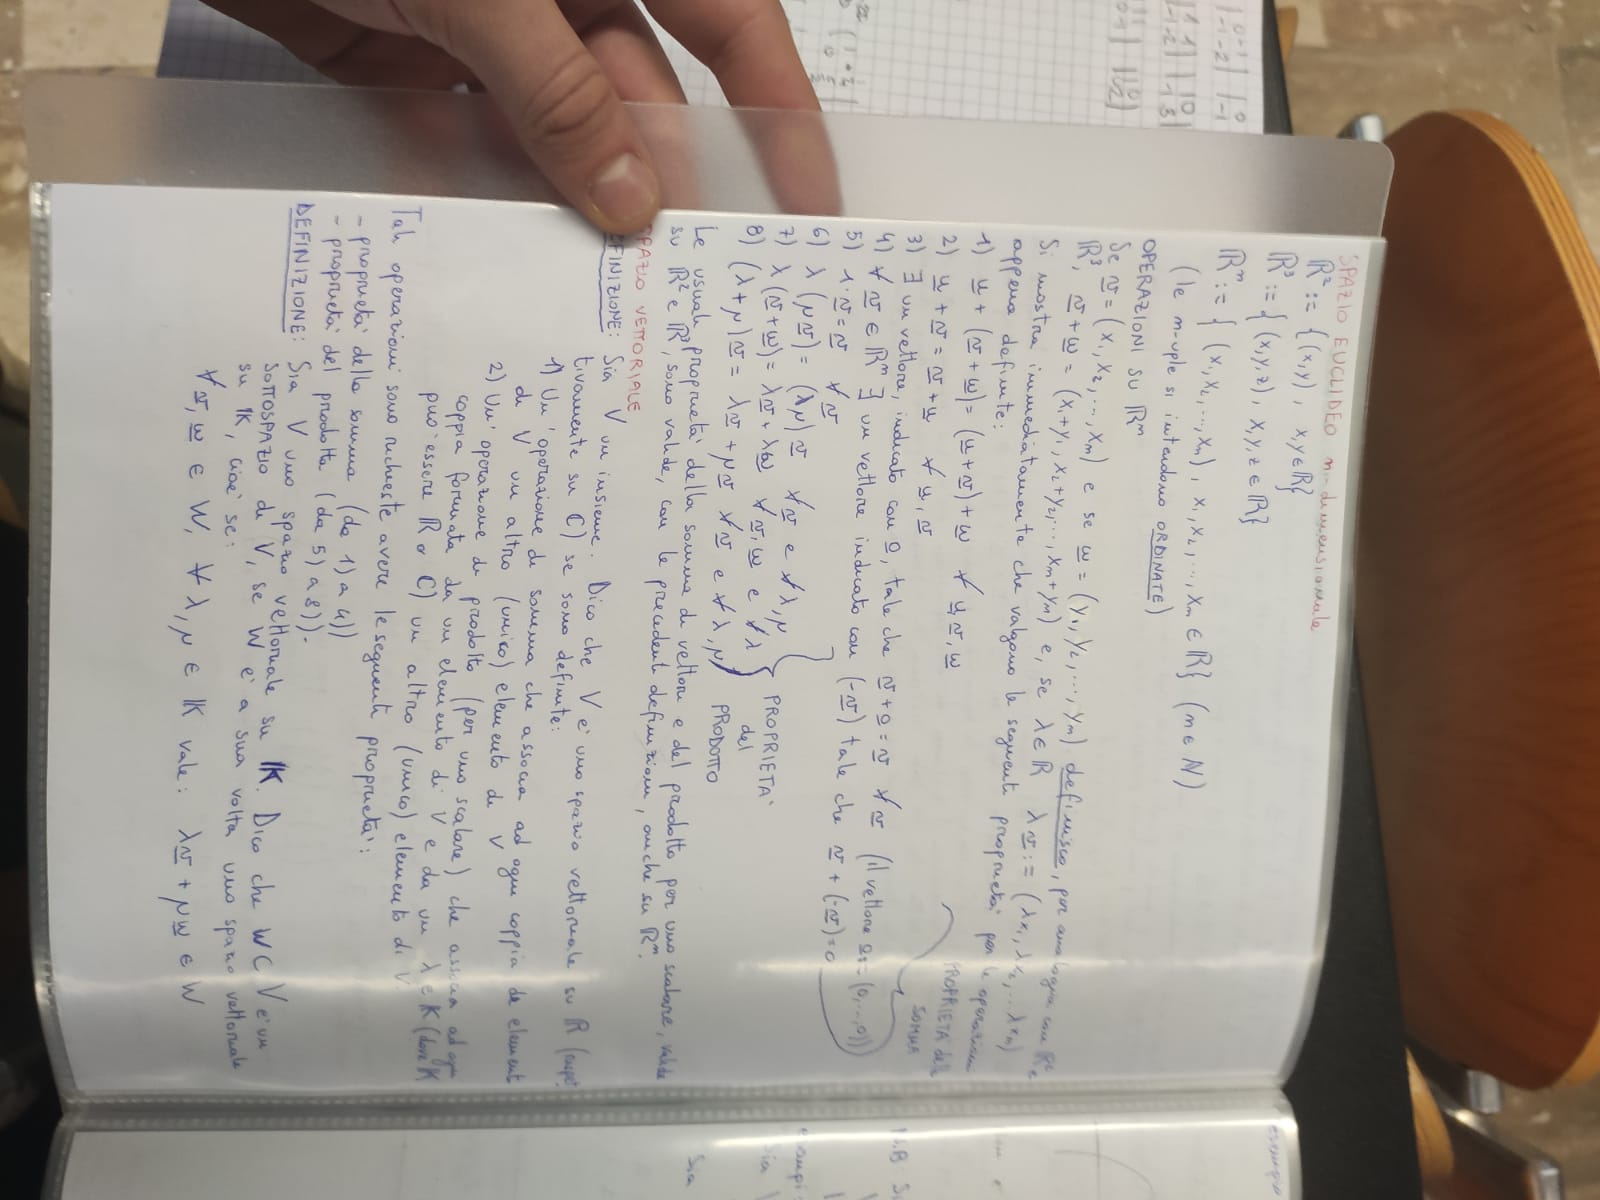 SPAZIO EUCLIDEO n-dimensionale
ℝ² := {(x,y), x,y ∈ ℝ}
ℝ³ := {(x,y,z), x,y,z ∈ ℝ}
ℝⁿ := {(x₁,x₂,...,xₙ), x₁,x₂,...,xₙ ∈ ℝ} (n ∈ N)
(le n-uple si intendono ORDINATE)
OPERAZIONI SU ℝⁿ
Se v = (x₁,x₂,...,xₙ) e se w = (y₁,y₂,...,yₙ) definisco, per analogia con ℝ² e
ℝ³, v+w = (x₁+y₁, x₂+y₂,..., xₙ+yₙ) e, se λ ∈ ℝ λv := (λx₁, λx₂,... λxₙ)
Si mostra immediatamente che valgono le seguenti proprietà per le operazioni
appena definite:
1) u + (v+w) = (u+v) + w ∀ u,v,w
2) u+v = v+u ∀ u,v
3) ∃ un vettore, indicato con 0, tale che v+0 = v ∀v (il vettore 0 := (0,...,0))
4) ∀ v ∈ ℝⁿ ∃ un vettore indicato con (-v) tale che v + (-v) = 0
PROPRIETÀ della
SOMMA
5) 1·v = v ∀v
6) λ(μv) = (λμ)v ∀v e ∀λ,μ
7) λ(v+w) = λv + λw ∀v,w e ∀λ
8) (λ+μ)v = λv + μv ∀v e ∀λ,μ
PROPRIETA'
del
PRODOTTO
Le usuali proprietà della somma di vettori e del prodotto per uno scalare, valide
su ℝ² e ℝ³, sono valide, con le precedenti definizioni, anche su ℝⁿ.
SPAZIO VETTORIALE
DEFINIZIONE: Sia V un insieme. Dico che V è uno spazio vettoriale su ℝ (rispet-
tivamente su ℂ) se sono definite:
1) Un'operazione di somma che associa ad ogni coppia di elementi
di V un altro (unico) elemento di V
2) Un'operazione di prodotto (per uno scalare) che associa ad ogni
coppia formata da un elemento di V e da un λ ∈ K (dove K
può essere ℝ o ℂ) un altro (unico) elemento di V.
Tali operazioni sono richieste avere le seguenti proprietà:
- proprietà della somma (da 1) a 4))
- proprietà del prodotto (da 5) a 8)).
DEFINIZIONE: Sia V uno spazio vettoriale su K. Dico che W ⊂ V è un
SOTTOSPAZIO di V, se W è a sua volta uno spazio vettoriale
su K, cioè se:
∀ v, w ∈ W, ∀ λ, μ ∈ K vale: λv + μw ∈ W
esempio
N.B. Si
esempi:
Sia
Sia